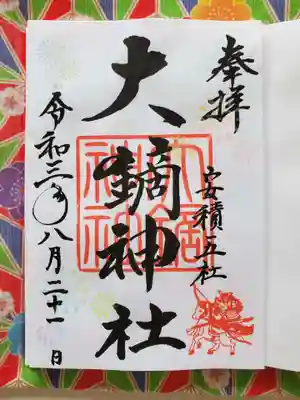 奉拝
安積五社
大鏑神社
令和三年八月二十一日